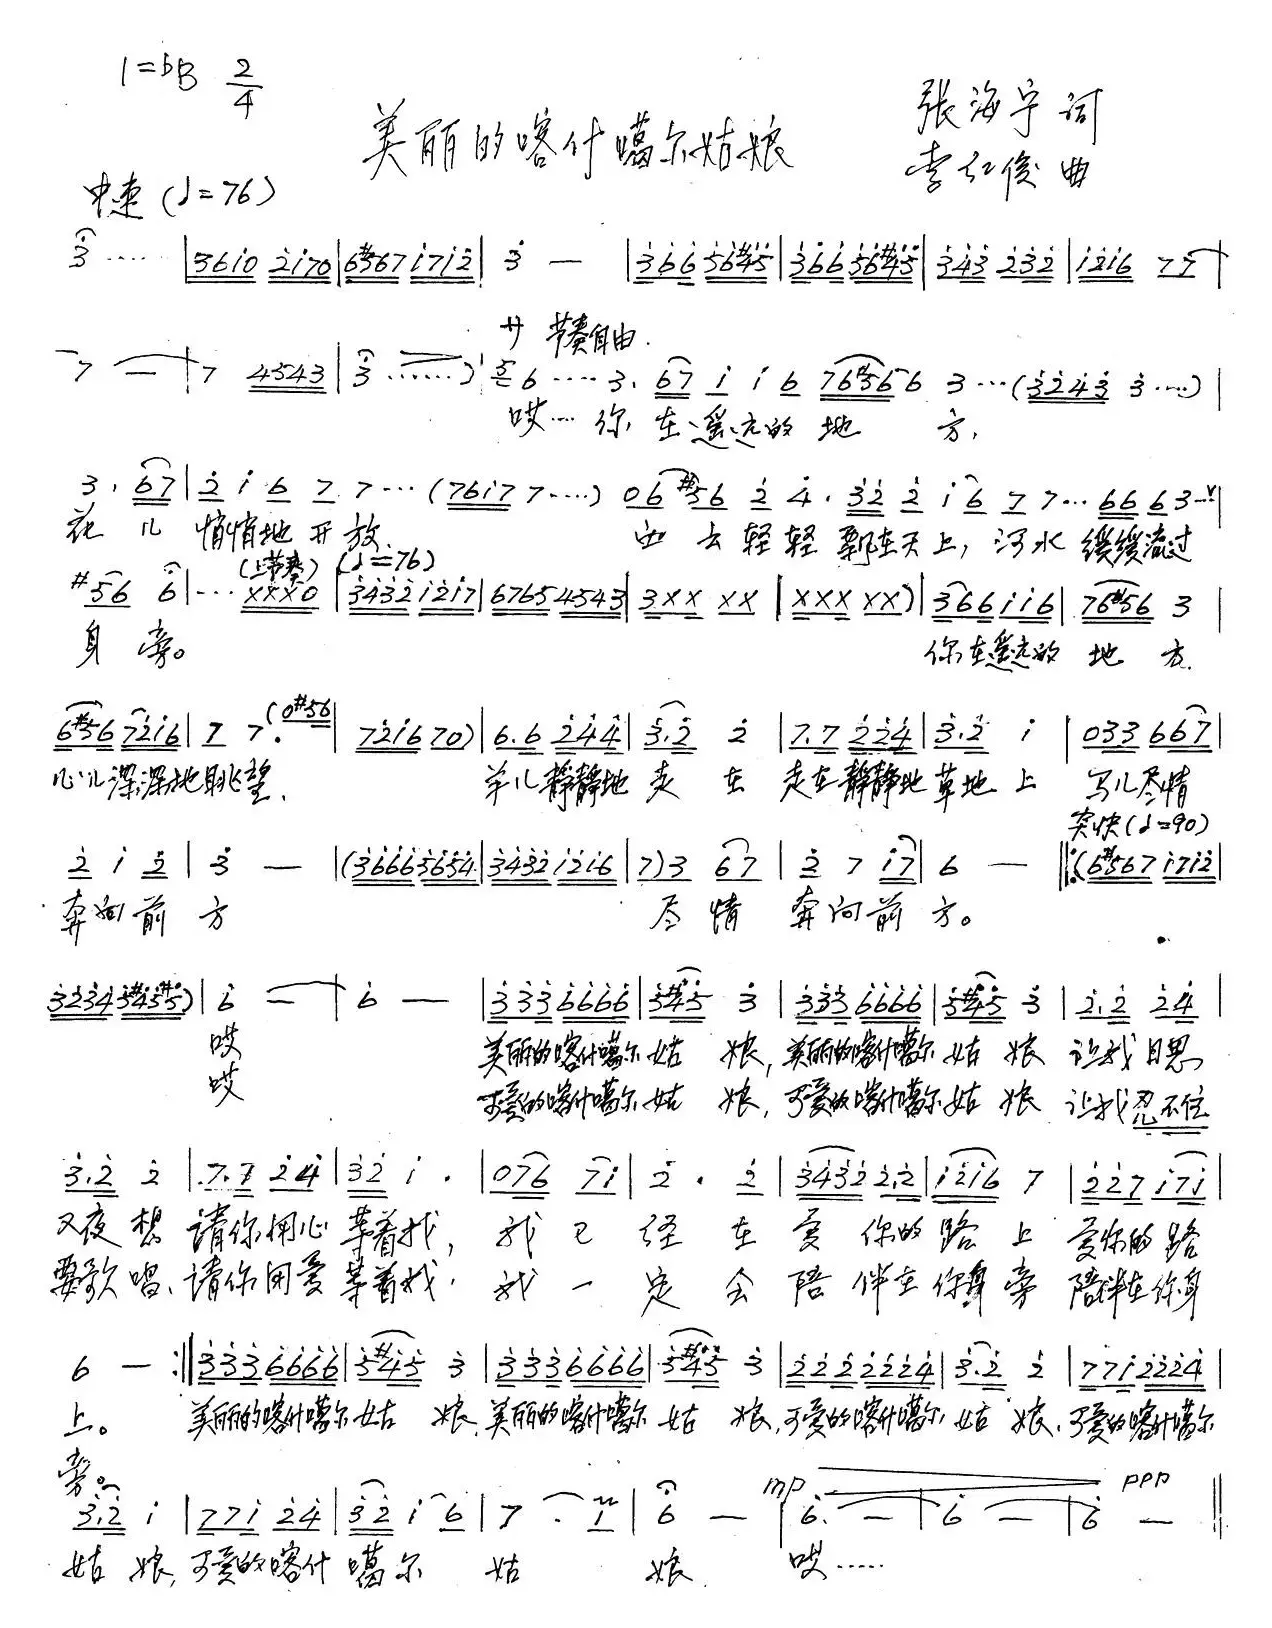 1=♭B 2/4
美丽的喀什噶尔姑娘
张海宇 词
李红俊 曲
中速 (♩=76)
3̇ ····· | 3 6 i 0 2̇ i 7 0 | 6 #5 6 7 i 7 i 2̇ | 3̇ — | 3̇ 6̇ 6̇ 5̇ 6̇ #4̇ 5̇ | 3̇ 6̇ 6̇ 5̇ 6̇ #4̇ 5̇ | 3̇ 4̇ 3̇ 2̇ 3̇ 2̇ | i 2̇ i 6 7 7 |
サ 节奏自由.
7 — | 7 4 5 4 3 | 3 ······ ) 6 ···· 3. 6 7 i i 6 7 6 #5 6 6 3 ··· ( 3̇ 2̇ 4̇ 3̇ 3̇ ···· ) |
哎… 你 在遥远的 地 方,
3. 6 7 | 2̇ i 6 7 7 ··· ( 7 6 i 7 7 ···· ) 0 6 #5 6 2̇ 4̇. 3̇ 2̇ 2̇ i 6 7 7 ··· 6 6 6 3 ··· |
花 儿 悄悄地 开 放. 白 云 轻轻 飘在天上, 河水 缓缓流过
(上节奏) (♩=76)
#5 6 6 | ··· X X X 0 | 3̇ 4̇ 3̇ 2̇ i 2̇ i 7 | 6 7 6 5 4 5 4 3 | 3 X X X X | X X X X X ) | 3 6 6 i i 6 | 7 6 #5 6 3 |
身 旁。 你在遥远的 地 方.
6 #5 6 7 2̇ i 6 | 7 7. ( 0 #5 6 | 7 2̇ i 6 7 0 ) | 6. 6 2̇ 4̇ 4̇ | 3̇. 2̇ 2̇ | 7. 7 2̇ 2̇ 4̇ | 3̇. 2̇ i | 0 3 3 6 6 7 |
心儿深深地眺望. 羊儿静静地 走 在 走在静静地 草地 上 马儿尽情
突快 (♩=90)
2̇ i 2̇ | 3̇ — | ( 3̇ 6̇ 6̇ 6̇ 5̇ 6̇ 5̇ 4̇ | 3̇ 4̇ 3̇ 2̇ i 2̇ i 6 | 7 ) 3 6 7 | 2̇ 7 i 7 | 6 — ‖: ( 6 #5 6 7 i 7 i 2̇ |
奔向前 方 尽 情 奔向前 方。
3̇ 2̇ 3̇ 4̇ 5̇ #4̇ 5̇ #5̇ ) | 6̇ — | 6̇ — | 3̇ 3̇ 3̇ 6̇ 6̇ 6̇ 6̇ | 5̇ #4̇ 5̇ 3̇ | 3̇ 3̇ 3̇ 6̇ 6̇ 6̇ 6̇ | 5̇ #4̇ 5̇ 3̇ | 2̇. 2̇ 2̇ 4̇ |
哎 美丽的喀什噶尔 姑 娘, 美丽的喀什噶尔 姑 娘 让我 日思
哎 可爱的喀什噶尔 姑 娘, 可爱的喀什噶尔 姑 娘 让我忍不住
3̇. 2̇ 2̇ | 7. 7 2̇ 4̇ | 3̇ 2̇ i. | 0 7 6 7 i | 2̇. 2̇ | 3̇ 4̇ 3̇ 2̇ 2̇. 2̇ | i 2̇ i 6 7 | 2̇ 2̇ 7 i 7 i |
又夜 想 请你用心 等着我, 我 已 经 在 爱 你的 路 上 爱你的 路
要歌 唱、请你用爱 等着我. 我 一 定 会 陪 伴在 你身 旁 陪伴在你身
6 — :‖ 3̇ 3̇ 3̇ 6̇ 6̇ 6̇ 6̇ | 5̇ #4̇ 5̇ 3̇ | 3̇ 3̇ 3̇ 6̇ 6̇ 6̇ 6̇ | 5̇ #4̇ 5̇ 3̇ | 2̇ 2̇ 2̇ 2̇ 2̇ 2̇ 4̇ | 3̇. 2̇ 2̇ | 7 7 i 2̇ 2̇ 2̇ 4̇ |
上。 美丽的喀什噶尔 姑 娘, 美丽的喀什噶尔 姑 娘, 可爱的喀什噶尔 姑 娘, 可爱的喀什噶尔
旁。
mp ppp
3̇. 2̇ i | 7 7 i 2̇ 4̇ | 3̇ 2̇ i 6 | 7. i | 6̇ — | 6̇. — | 6̇ — | 6̇ — ‖
姑 娘, 可爱的喀什 噶 尔 姑 娘. 哎……